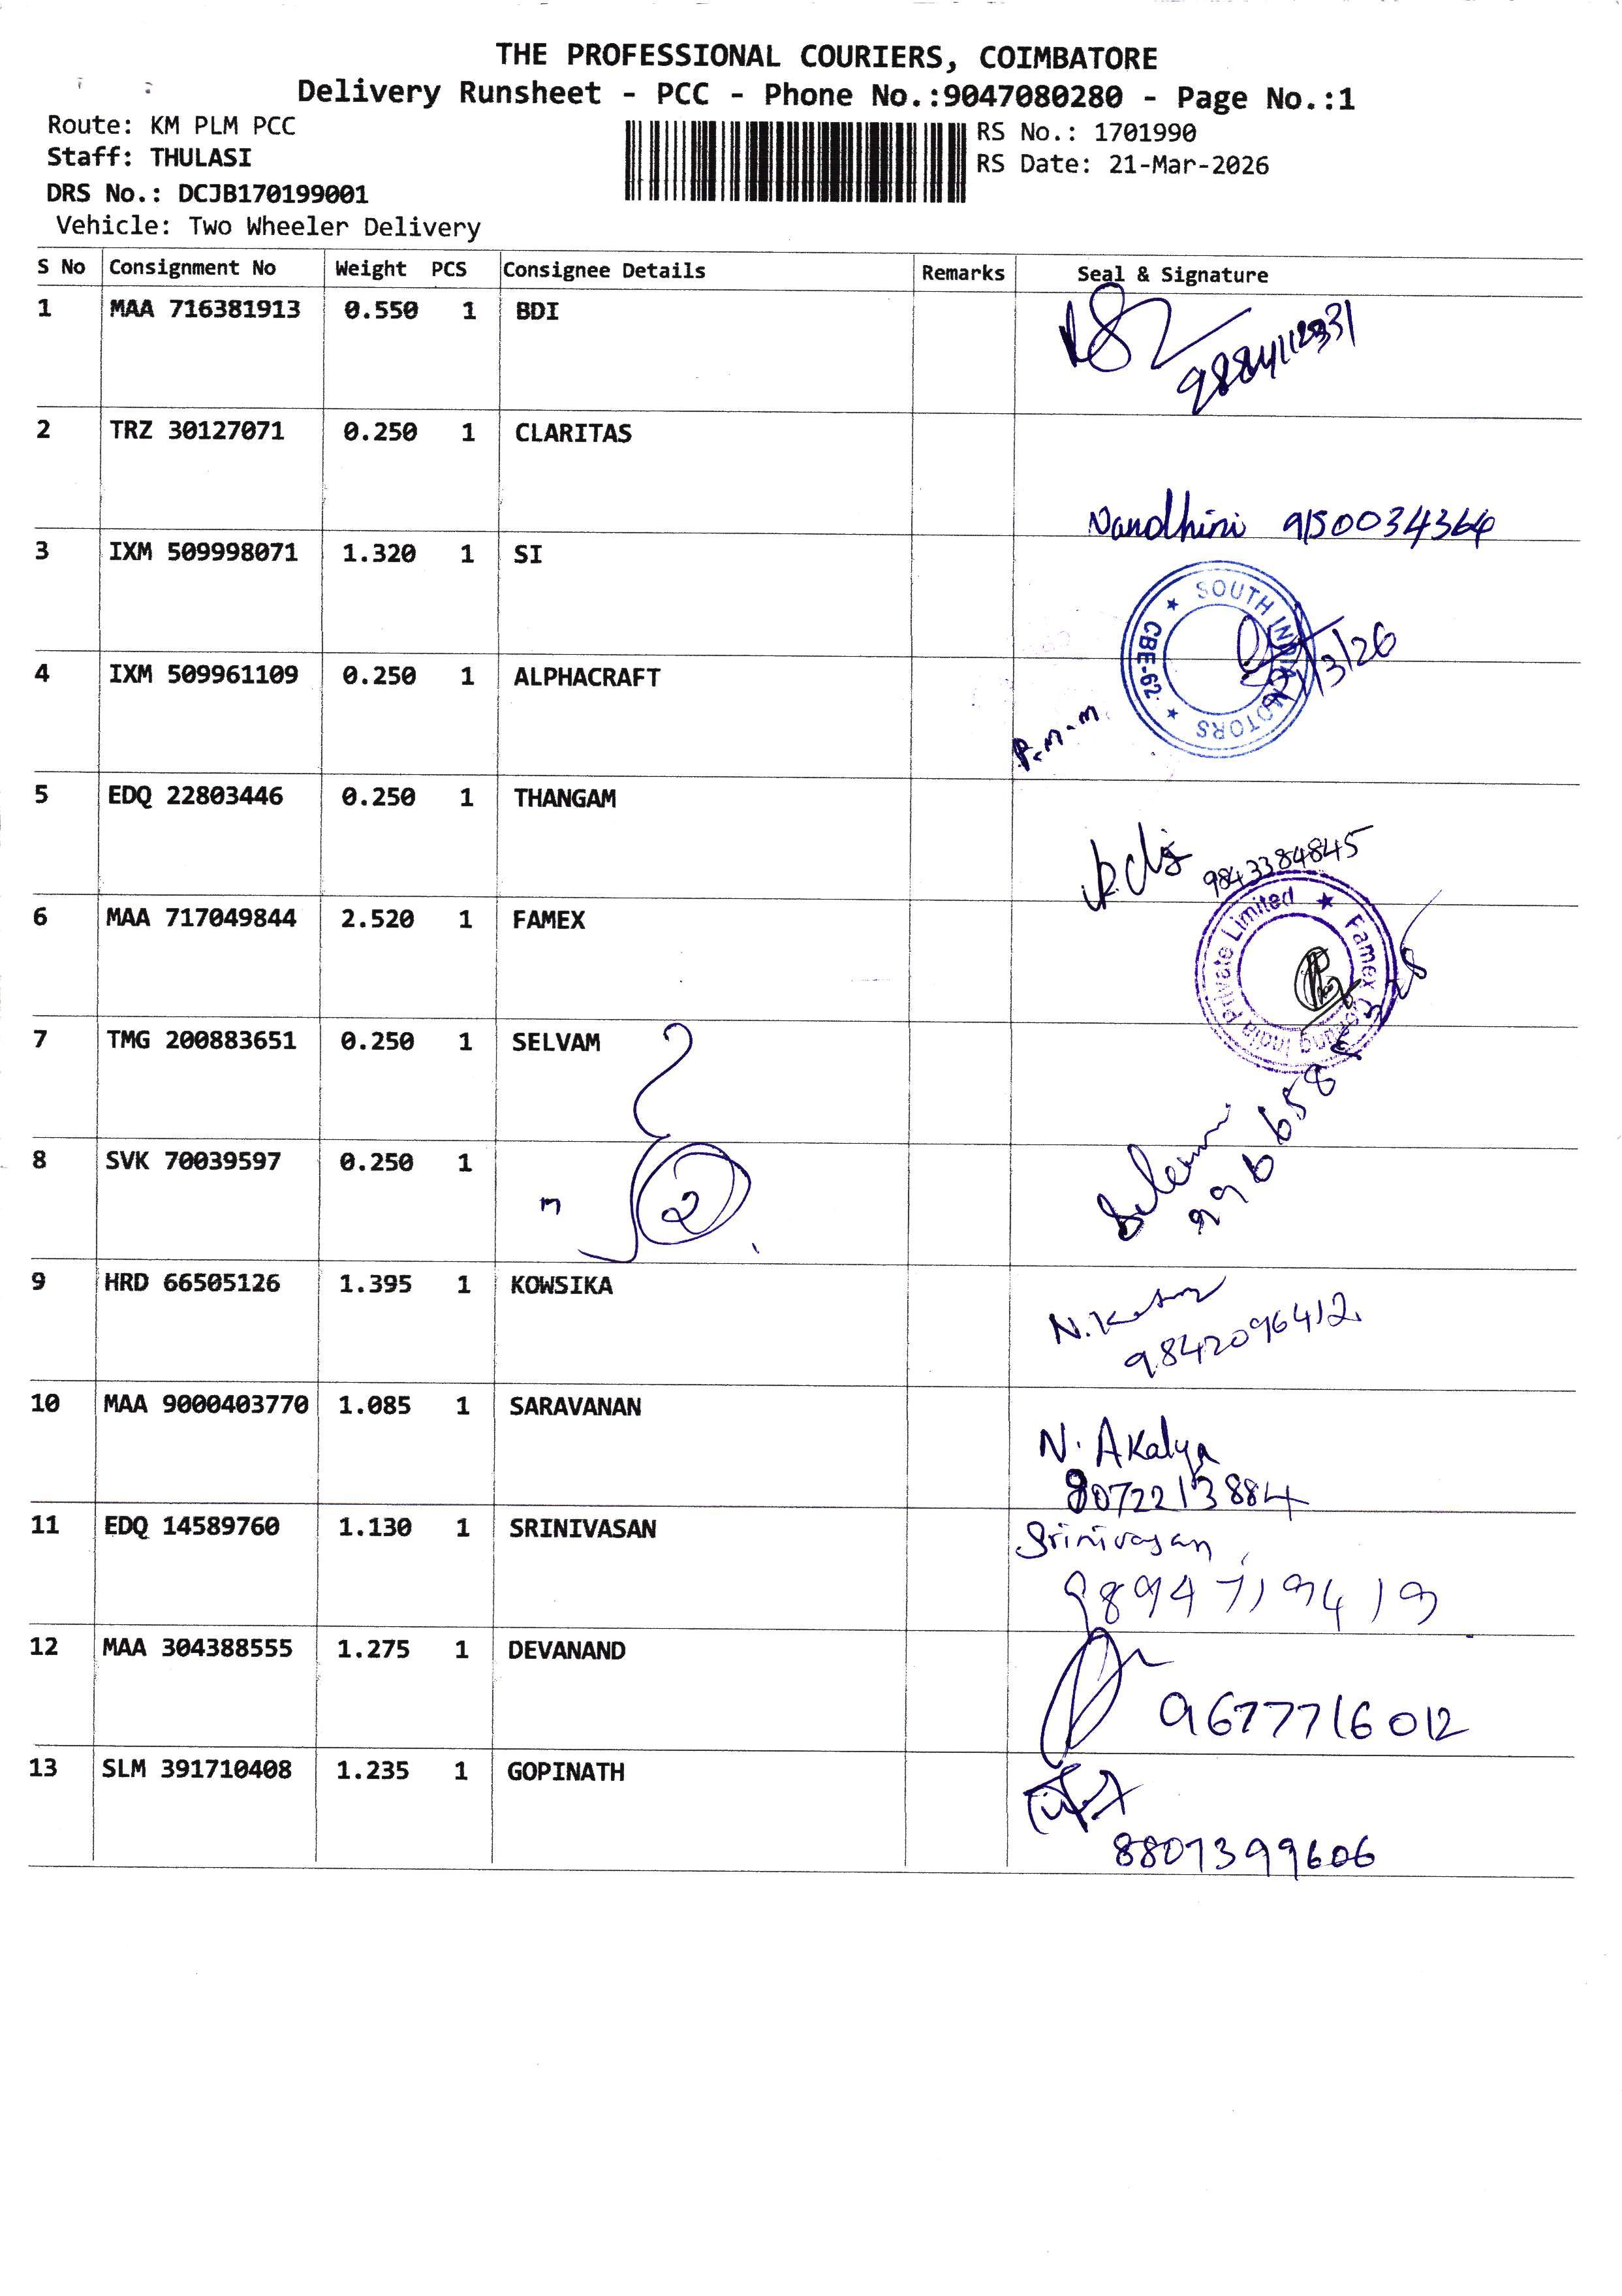 THE PROFESSIONAL COURIERS, COIMBATORE
Delivery Runsheet - PCC - Phone No.:9047080280 - Page No.:1
Route: KM PLM PCC
RS No.: 1701990
Staff: THULASI
RS Date: 21-Mar-2026
DRS No.: DCJB170199001
Vehicle: Two Wheeler Delivery
S No Consignment No Weight PCS Consignee Details Remarks Seal & Signature
1 MAA 716381913 0.550 1 BDI
2 TRZ 30127071 0.250 1 CLARITAS
Nandhini 9150034364
3 IXM 509998071 1.320 1 SI
SOUTH INDIA MOTORS ★ CBE-62 ★
4 IXM 509961109 0.250 1 ALPHACRAFT
P.m.m
5 EDQ 22803446 0.250 1 THANGAM
9843384845
6 MAA 717049844 2.520 1 FAMEX
7 TMG 200883651 0.250 1 SELVAM
8 SVK 70039597 0.250 1
2
9 HRD 66505126 1.395 1 KOWSIKA
9842096412
10 MAA 9000403770 1.085 1 SARAVANAN
N. Akalya
8072213884
11 EDQ 14589760 1.130 1 SRINIVASAN
Srinivasan
9894719419
12 MAA 304388555 1.275 1 DEVANAND
9677716012
13 SLM 391710408 1.235 1 GOPINATH
8807399606